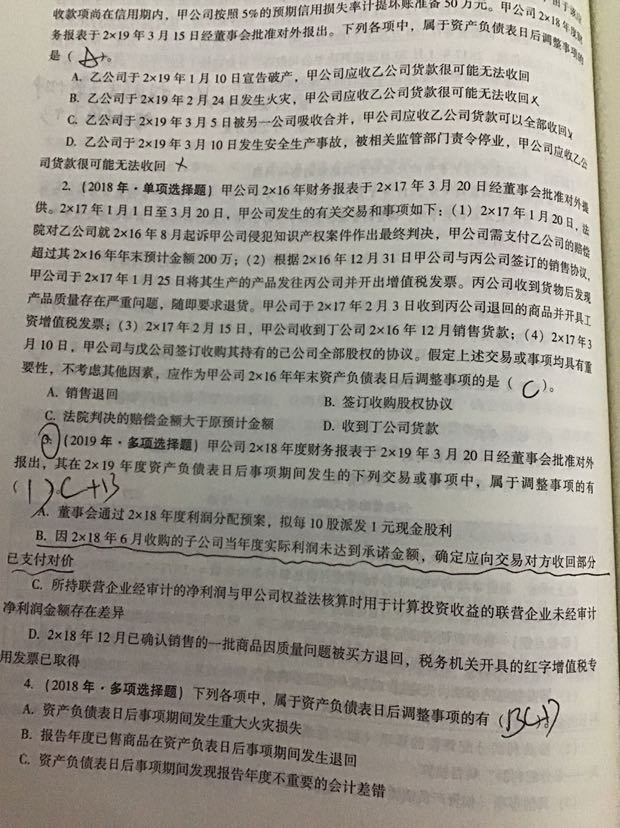 收款项尚在信用期内，甲公司按照 5%的预期信用损失率计提坏账准备 50 万元。甲公司 2×18 年度财
务报表于 2×19 年 3 月 15 日经董事会批准对外报出。下列各项中，属于资产负债表日后调整事项的
是（ A ）。
A. 乙公司于 2×19 年 1 月 10 日宣告破产，甲公司应收乙公司货款很可能无法收回
B. 乙公司于 2×19 年 2 月 24 日发生火灾，甲公司应收乙公司货款很可能无法收回 ×
C. 乙公司于 2×19 年 3 月 5 日被另一公司吸收合并，甲公司应收乙公司货款可以全部收回 ×
D. 乙公司于 2×19 年 3 月 10 日发生安全生产事故，被相关监管部门责令停业，甲公司应收乙公
司货款很可能无法收回 ×
2.（2018 年·单项选择题）甲公司 2×16 年财务报表于 2×17 年 3 月 20 日经董事会批准对外提
供。2×17 年 1 月 1 日至 3 月 20 日，甲公司发生的有关交易和事项如下：（1）2×17 年 1 月 20 日，法
院对乙公司就 2×16 年 8 月起诉甲公司侵犯知识产权案件作出最终判决，甲公司需支付乙公司的赔偿
超过其 2×16 年年末预计金额 200 万；（2）根据 2×16 年 12 月 31 日甲公司与丙公司签订的销售协议，
甲公司于 2×17 年 1 月 25 日将其生产的产品发往丙公司并开出增值税发票。丙公司收到货物后发现
产品质量存在严重问题，随即要求退货。甲公司于 2×17 年 2 月 3 日收到丙公司退回的商品并开具工
资增值税发票；（3）2×17 年 2 月 15 日，甲公司收到丁公司 2×16 年 12 月销售货款；（4）2×17 年 3
月 10 日，甲公司与戊公司签订收购其持有的己公司全部股权的协议。假定上述交易或事项均具有重
要性，不考虑其他因素，应作为甲公司 2×16 年年末资产负债表日后调整事项的是（ C ）。
A. 销售退回 B. 签订收购股权协议
C. 法院判决的赔偿金额大于原预计金额 D. 收到丁公司货款
3.（2019 年·多项选择题）甲公司 2×18 年度财务报表于 2×19 年 3 月 20 日经董事会批准对外
报出，其在 2×19 年度资产负债表日后事项期间发生的下列交易或事项中，属于调整事项的有
（ D C+B
A. 董事会通过 2×18 年度利润分配预案，拟每 10 股派发 1 元现金股利
B. 因 2×18 年 6 月收购的子公司当年度实际利润未达到承诺金额，确定应向交易对方收回部分
已支付对价
C. 所持联营企业经审计的净利润与甲公司权益法核算时用于计算投资收益的联营企业未经审计
净利润金额存在差异
D. 2×18 年 12 月已确认销售的一批商品因质量问题被买方退回，税务机关开具的红字增值税专
用发票已取得
4.（2018 年·多项选择题）下列各项中，属于资产负债表日后调整事项的有（ BC
A. 资产负债表日后事项期间发生重大火灾损失
B. 报告年度已售商品在资产负债表日后事项期间发生退回
C. 资产负债表日后事项期间发现报告年度不重要的会计差错